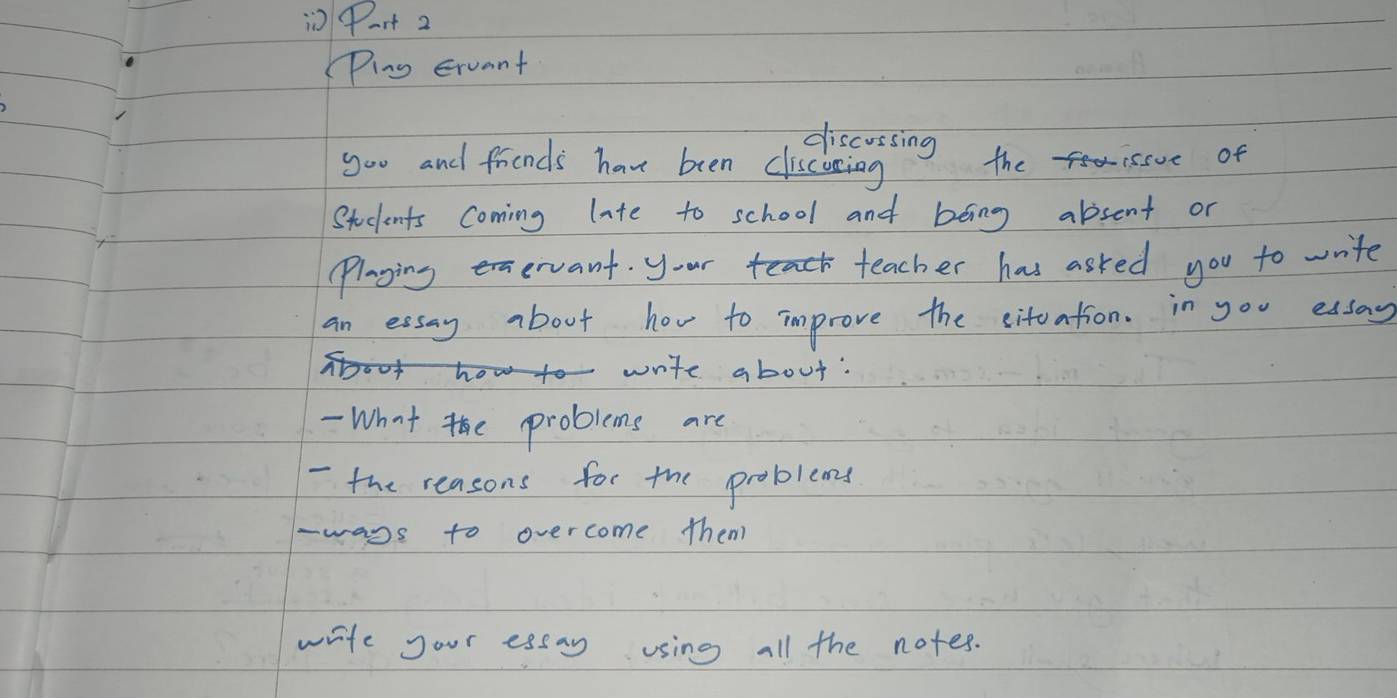 ii) Part 2
Play Eruant
discussing
you and friends have been discucing the issue of
Students Coming late to school and being absent or
Playing eruant. your teach teacher has asked you to write
an essay about how to improve the situation. in you essay
About how to write about:
- What the problems are
- the reasons for the problems
- ways to overcome them
write your essay using all the notes.